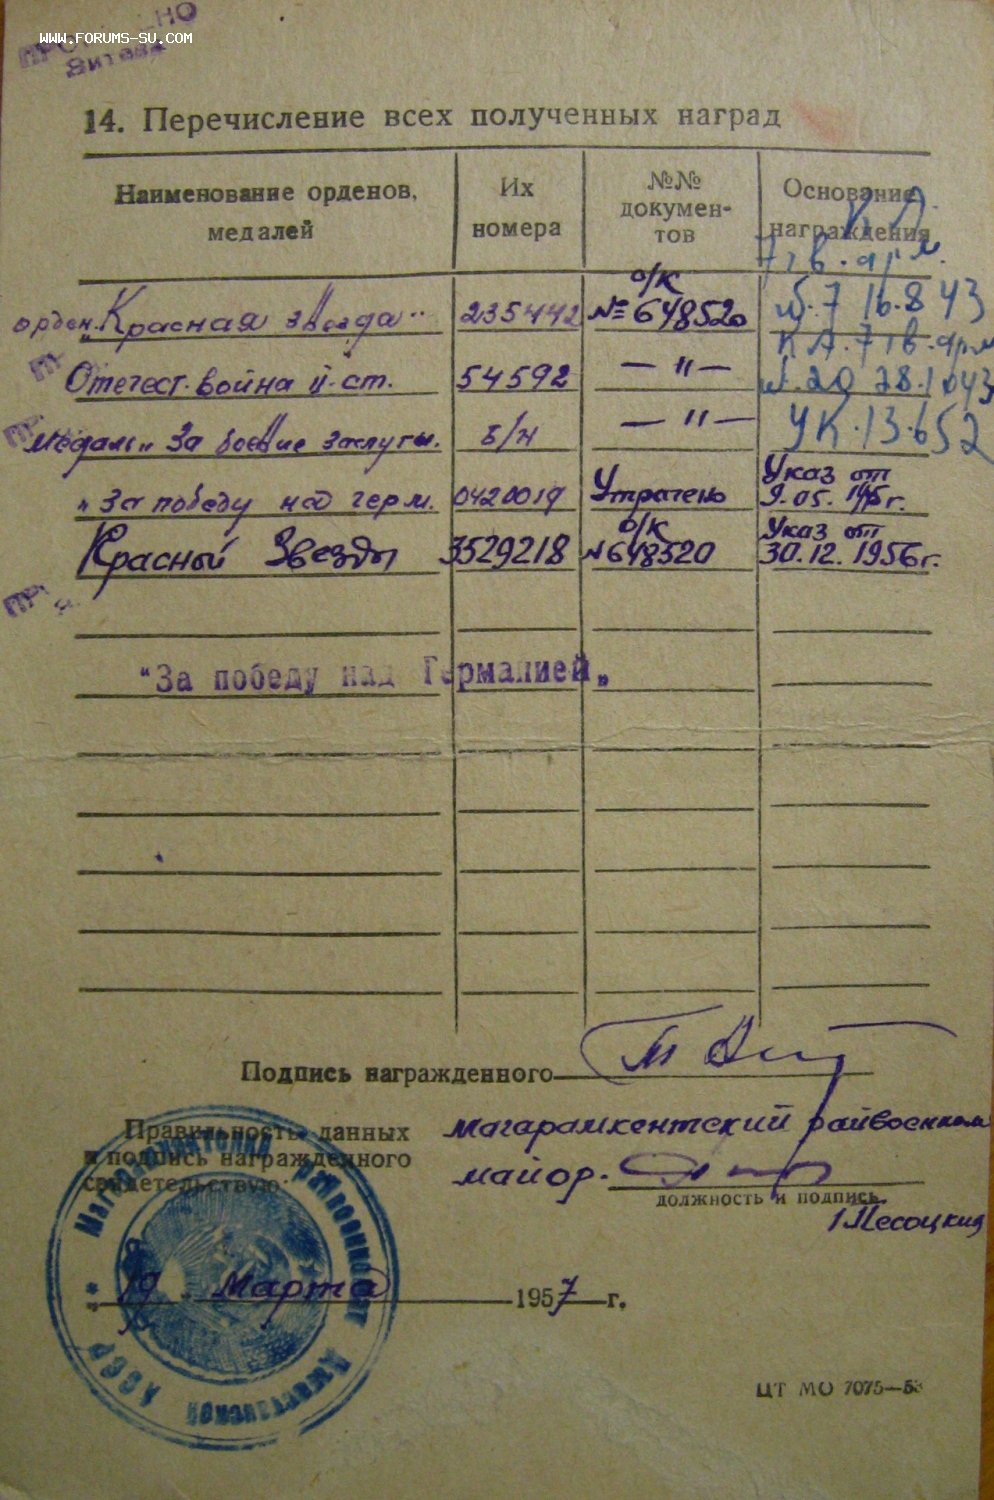 WWW.FORUMS-SU.COM
14. Перечисление всех полученных наград
Наименование орденов, медалей
Их номера
№№ докумен-тов
Основание награждения
орден. „Красная звезда" 235442 о/к № 648520 7 гв. арм. №.7 16.8 43
Отечест. война II-ст. 54592 — " — КА. 7 гв. арм №.20 28.1043
медаль „За боевые заслуги. б/н — " — УК.13.652
„За победу над герм. 0420019 Утрачено Указ от 9.05.1945г.
Красный Звезды 3529218 о/к №648520 Указ от 30.12.1956г.
"За победу над Германией„
Подпись награжденного
Правильность данных
и подпись награжденного
свидетельствую:
Магарамкентский райвоенком
майор.
должность и подпись
Песоцкий
19 Марта 1957 г.
Дагестанской АССР
ЦТ МО 7075—53